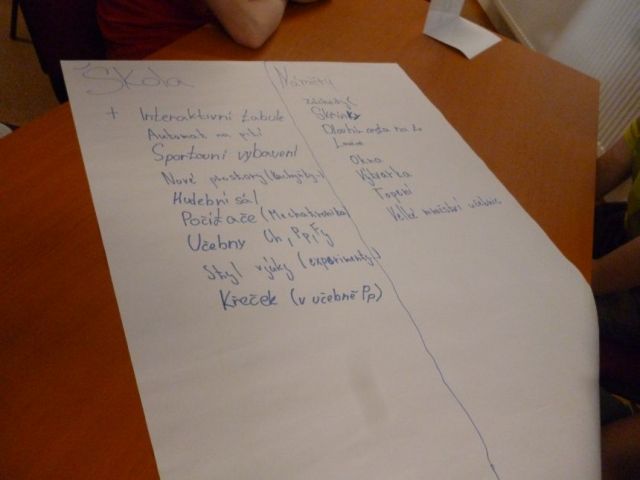 Škola
+ Interaktivní tabule
Automat na pití
Sportovní vybavení
Nové prostory
Hudební sál
Počítače (Mechatronika)
Učebny Ch, Pp, Fy
Styl výuky (experimenty)
Křeček (v učebně Pp)
Náměty
záchody
Skříňky
Dlouhá cesta na
Okna
Výtvarka
Topení
Velké množství učebnic